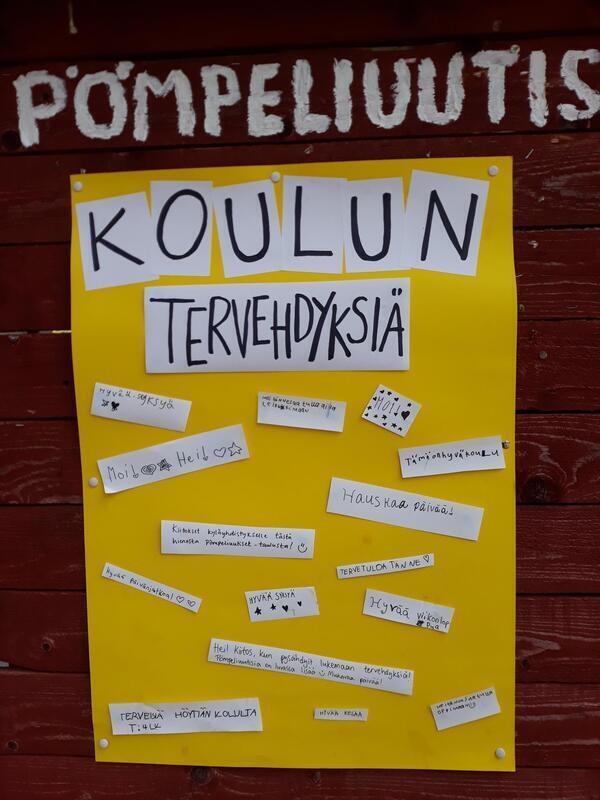 PÖMPELIUUTIS
KOULUN
TERVEHDYKSIÄ
HYVÄÄ SYKSYÄ
MOI!
Moi! Hei!
Tämäonhyväkoulu
Hauskaa päivää!
Kiitokset kyläyhdistykselle tästä
hienosta Pömpeliuutiset-taulusta!
TERVETULOA TÄNNE
hyvää Päivänjatkoa!
HYVÄÄ SYKSYÄ
Hyvää viikonlop
pua
Hei! Kiitos, kun pysähdyit lukemaan tervehdyksiä!
Pömpeliuutisia on luvassa lisää Mukavaa päivää!
TERVEISIÄ HÖYTIÄN KOULULTA
T: 4LK
HYVÄÄ KESÄÄ